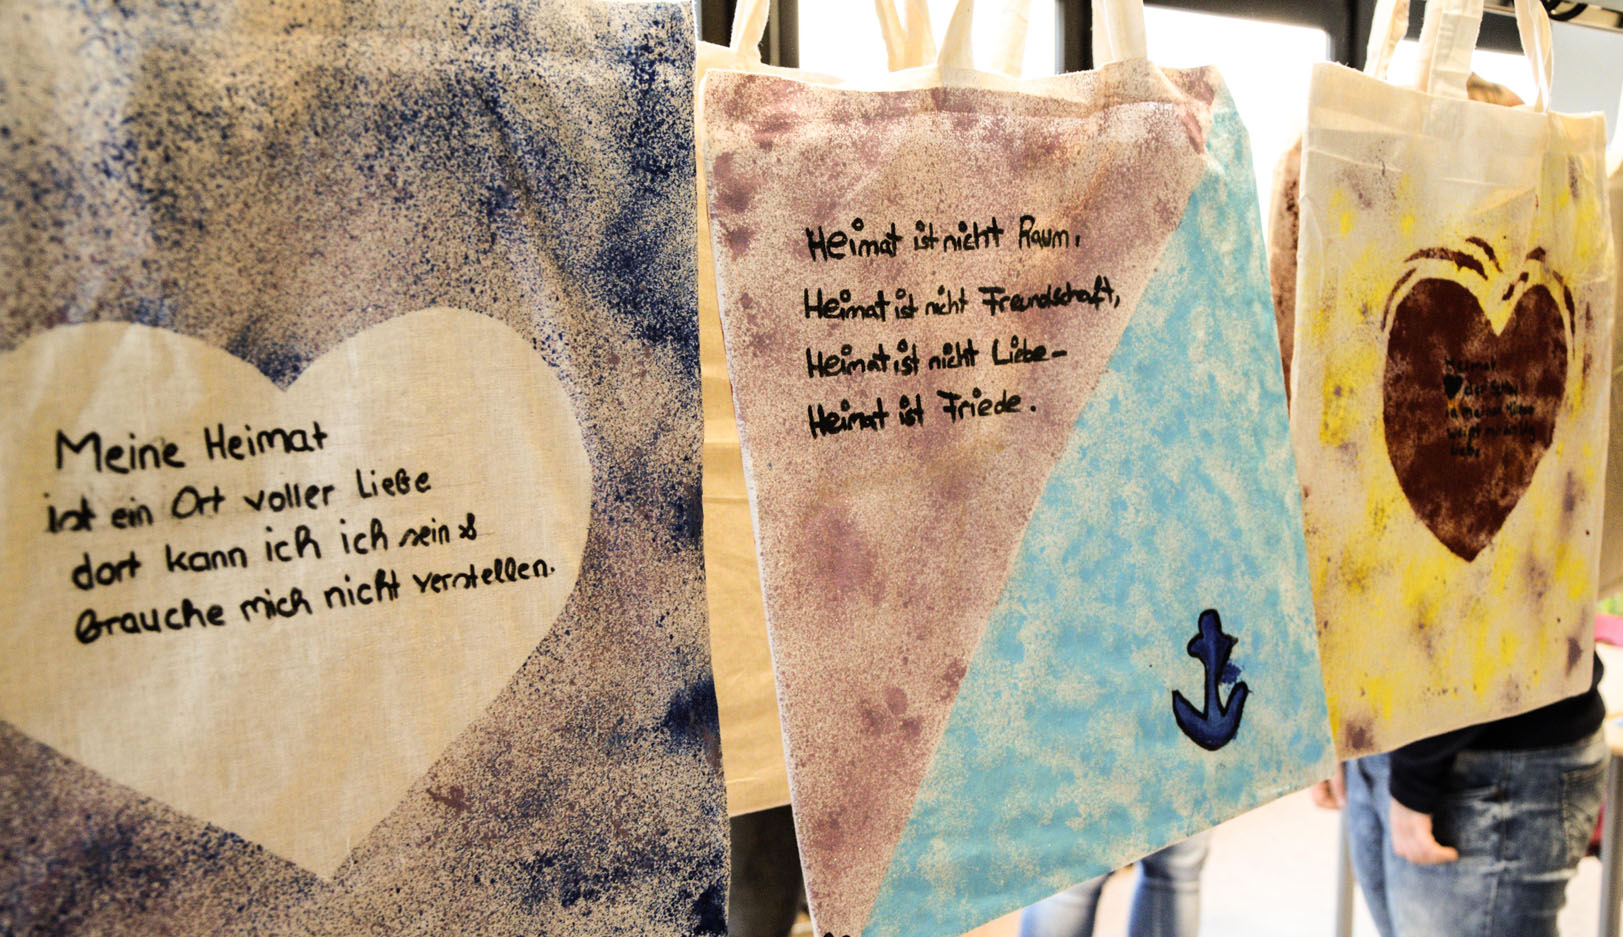 Meine Heimat
ist ein Ort voller Liebe
dort kann ich ich sein &
brauche mich nicht verstellen.
Heimat ist nicht Raum,
Heimat ist nicht Freundschaft,
Heimat ist nicht Liebe –
Heimat ist Friede.
Heimat
der
in meiner
Liebe